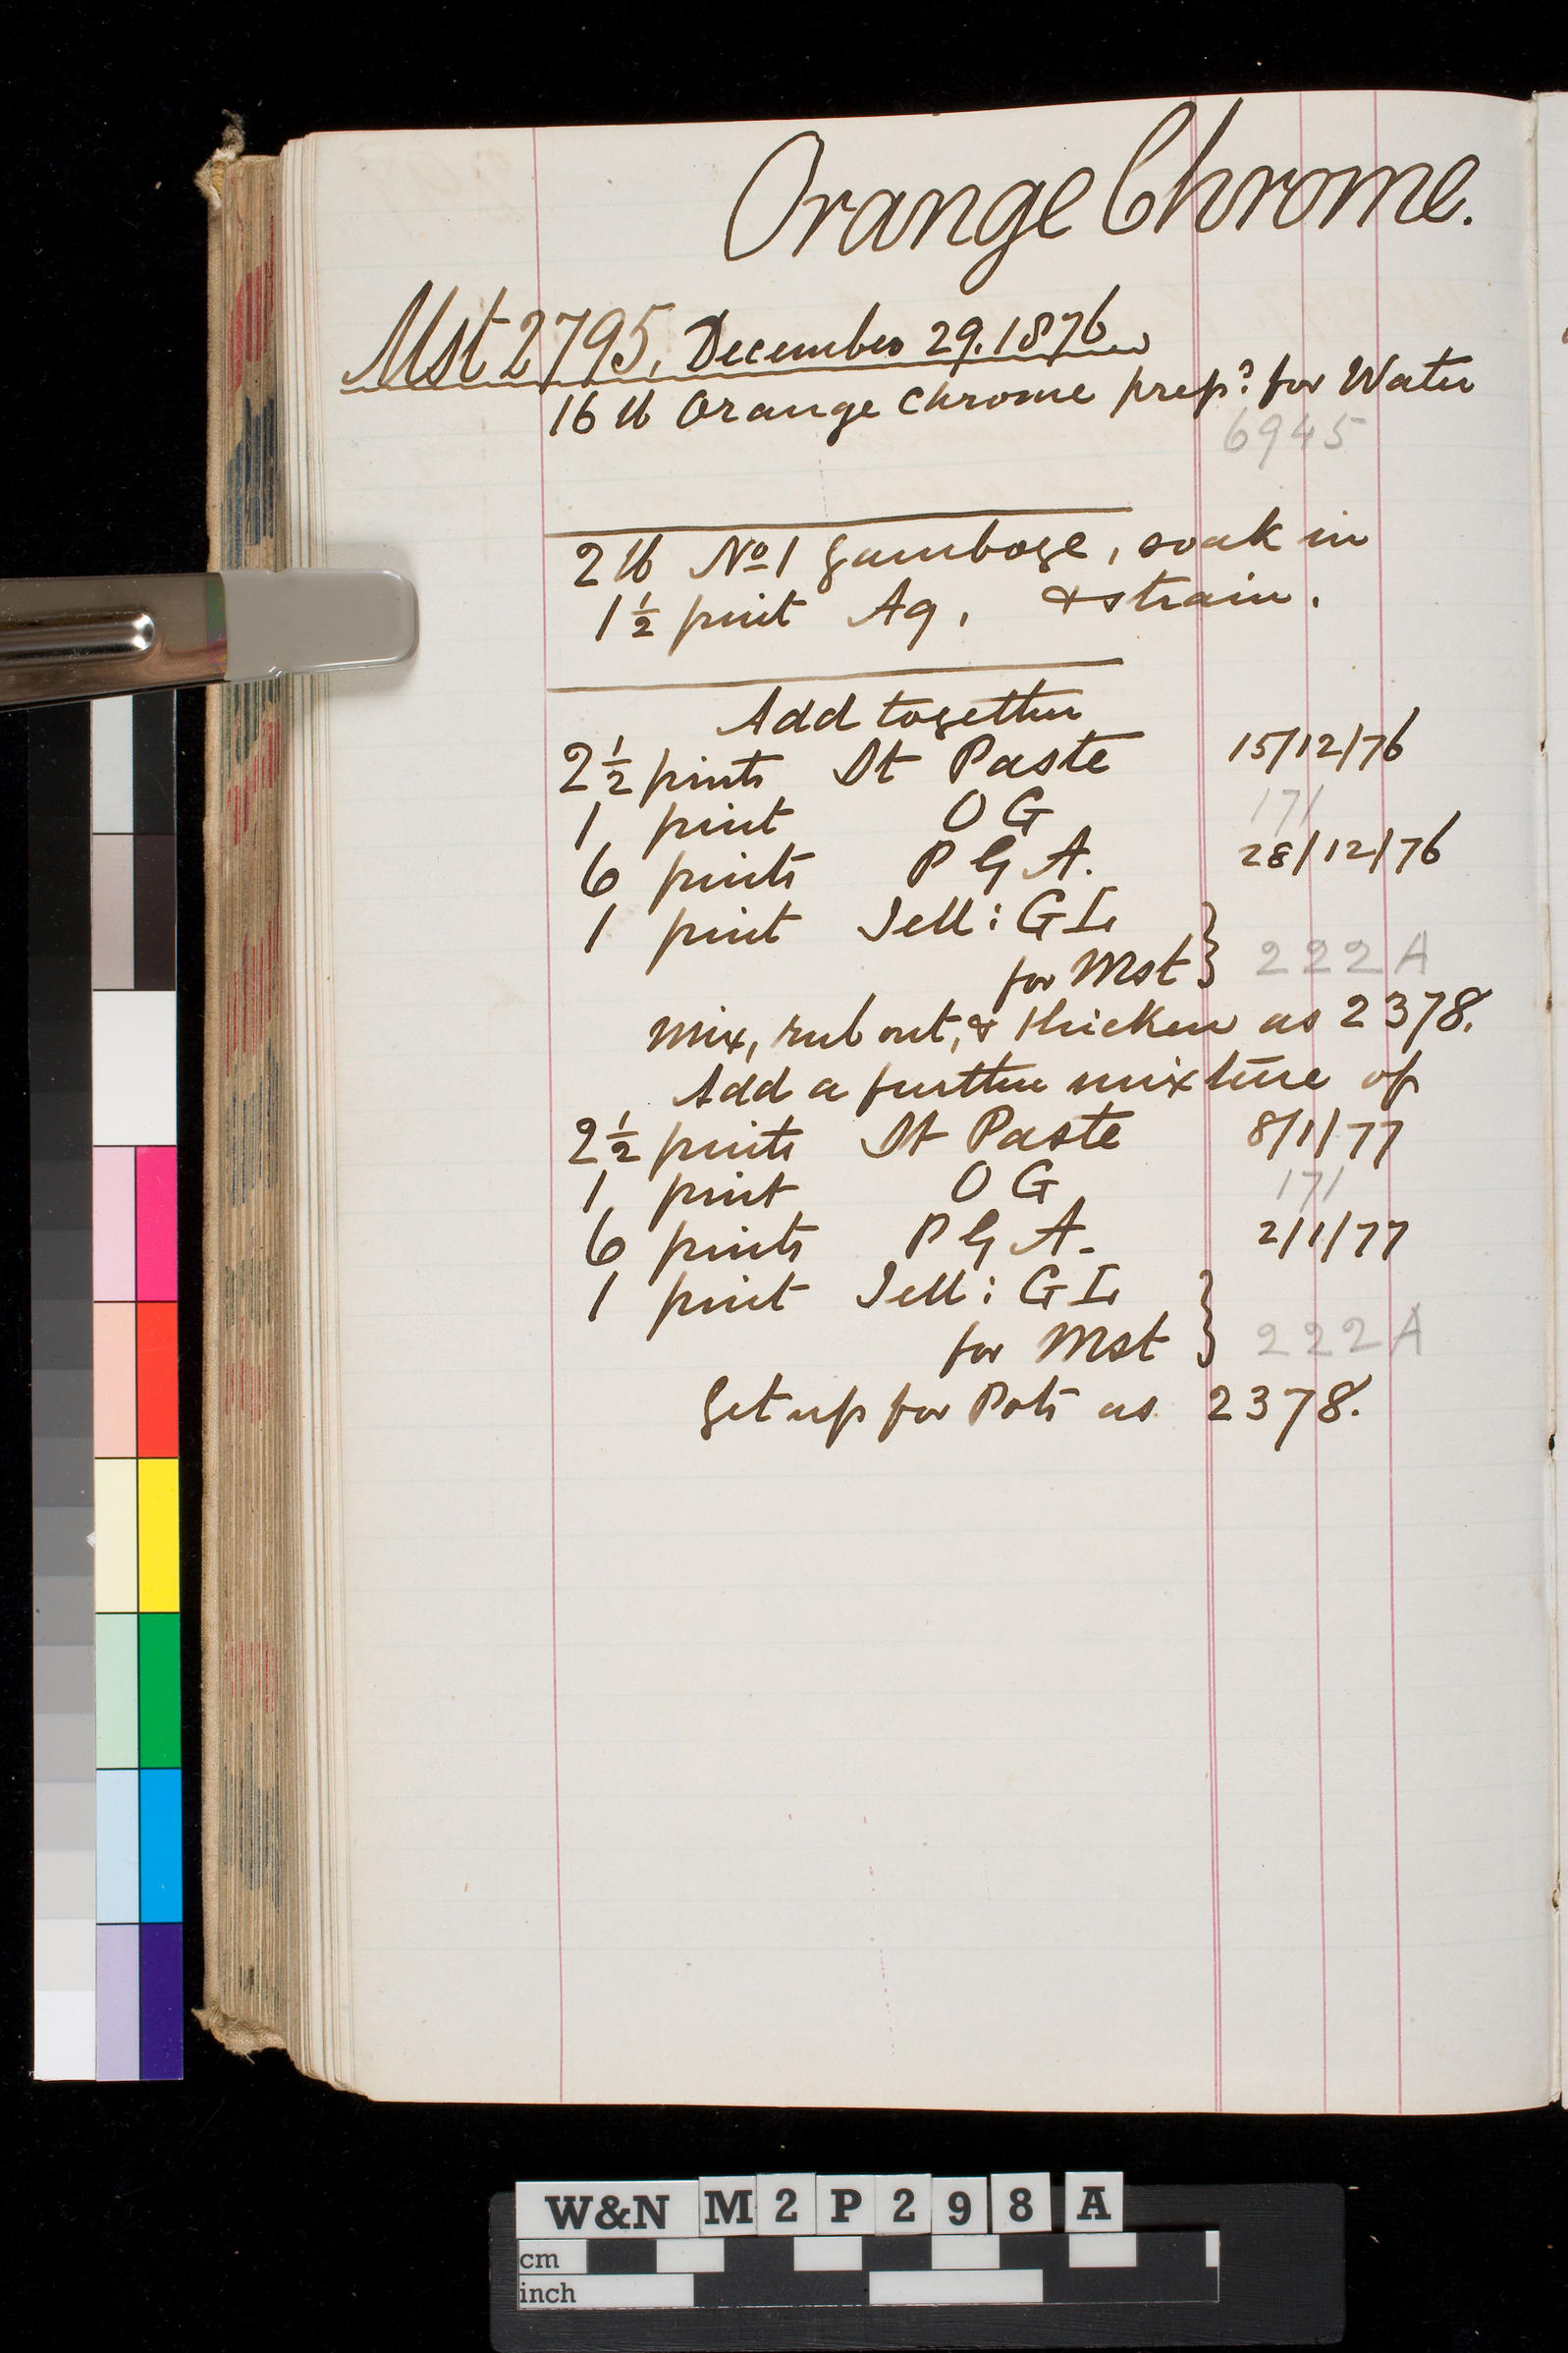 Orange Chrome.
Mst 2795, December 29. 1876
16 lb Orange Chrome prepd for Water
6945
2 lb No 1 Gamboge, soak in
1½ pint Aq, & strain.
Add together
2½ pints Dt Paste 15/12/76
1 pint OG 171
6 pints P G A. 28/12/76
1 pint Jell: GL
for Mst } 222A
Mix, rub out, & thicken as 2378.
Add a further mixture of
2½ pints Dt Paste 8/1/77
1 pint OG 171
6 pints P G A. 2/1/77
1 pint Jell: GL
for Mst } 222A
Get up for Pots as 2378.
W&N M2P298A
cm
inch